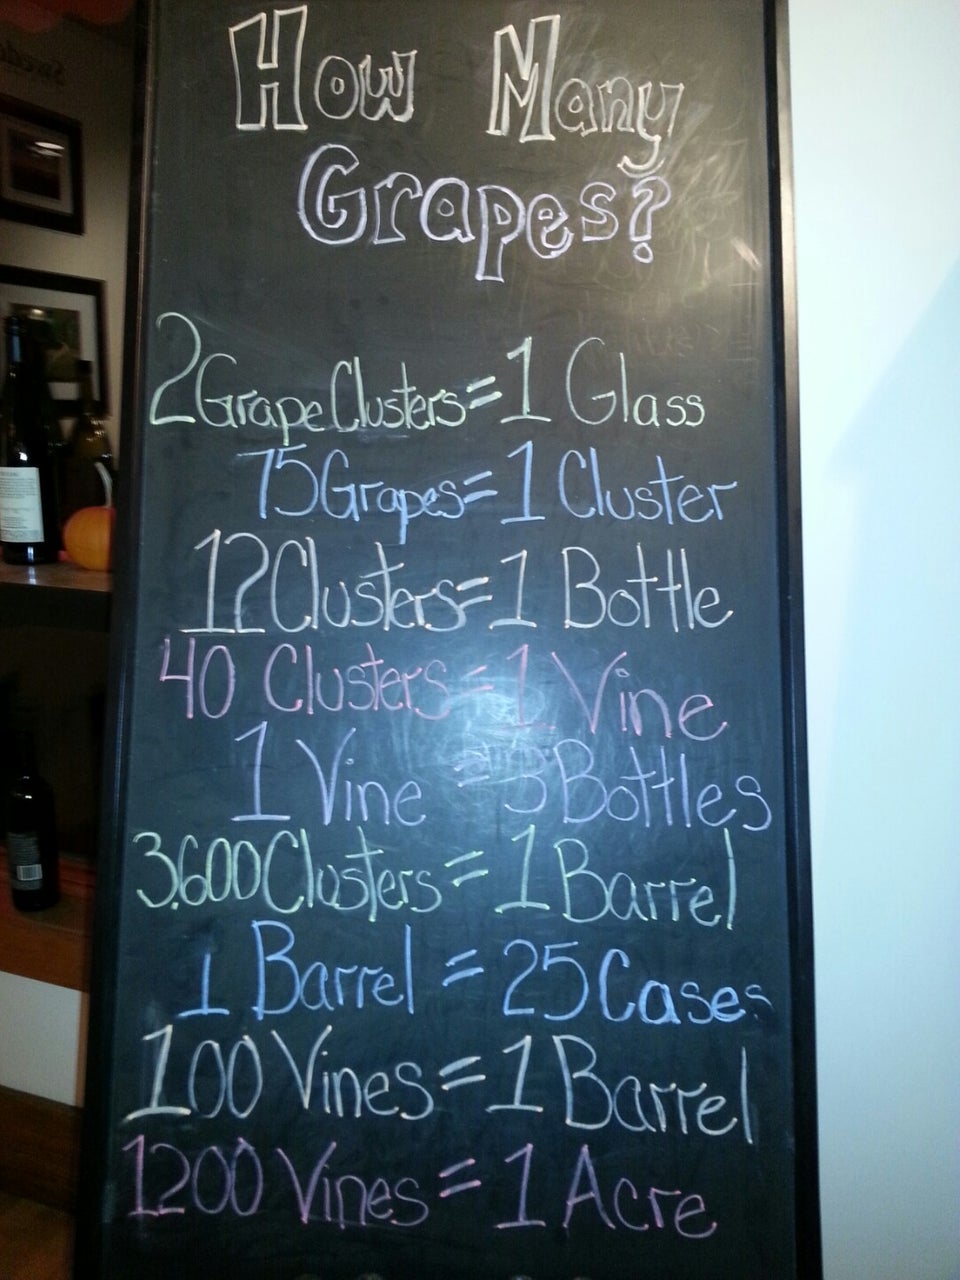 How Many
Grapes?
2 Grape Clusters = 1 Glass
75 Grapes = 1 Cluster
12 Clusters = 1 Bottle
40 Clusters = 1 Vine
1 Vine = 3 Bottles
3,600 Clusters = 1 Barrel
1 Barrel = 25 Cases
100 Vines = 1 Barrel
1200 Vines = 1 Acre